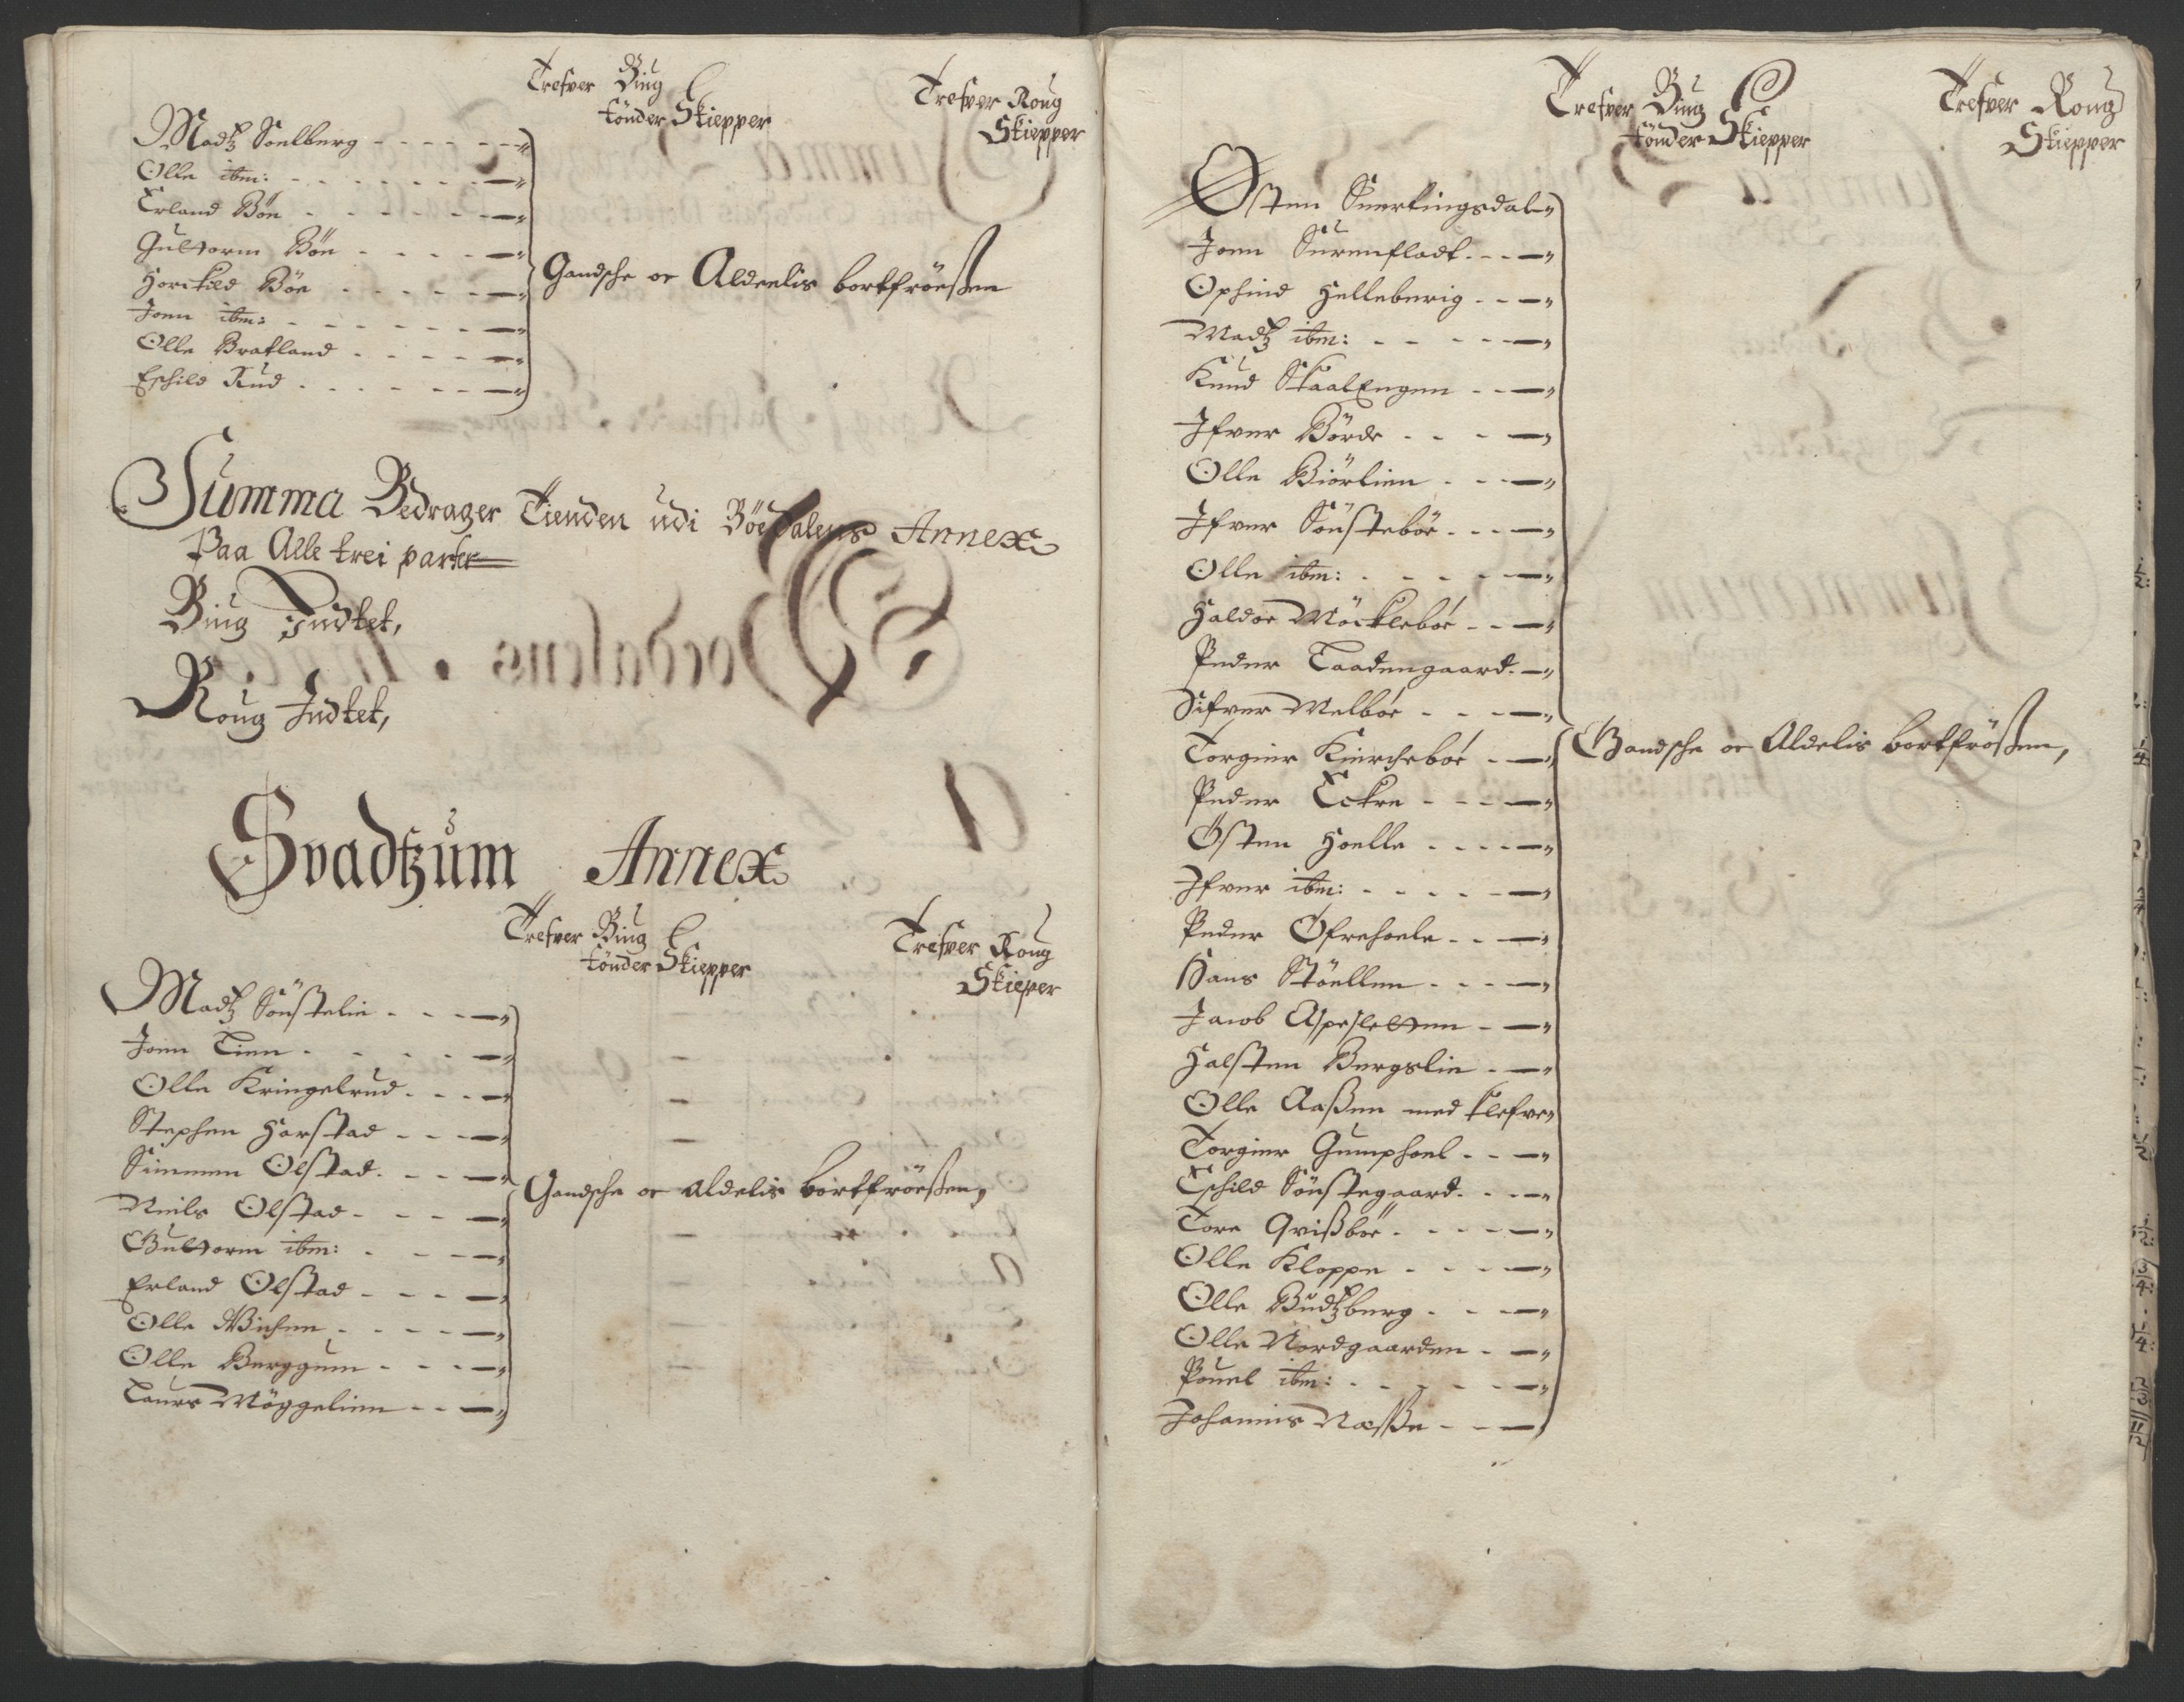 Trefver Biug
tönder Skiepper
Trefver Roug
Skiepper
Madtz Soelberg
Olle ibm:
Erland Böe
Guttorm Böe
Jonn ibm:
Olle Bratland
Eschild Rud
Gandsche oc Aldeelis bortfröeßen
Summa Bedrager Tienden udi Böedalens Annex
Paa Alle trei parter
Biug Indtet,
Roug Indtet,
Svadtzum Annex
Trefver Biug
tönder Skiepper
Trefver Roug
Skieper
Madtz Sönstelie
Jonn Lien
Olle Kringelrud
Stephen Harstad
Simmen Olstad
Niels Olstad
Guttorm ibm:
Erland Olstad
Olle Wichen
Olle Berggum
Laurs Möggelien
Gandsche oc aldelis bortfröeßen,
Trefver Biug
tönder Skiepper
Trefver Roug
Skiepper
Østen Suertingsdal
Jonn Surenfladt
Ophind Helleberig
Madtz ibm:
Knud Skaalengen
Ifver Börde
Olle Biörlien
Ifver Sönsteböe
Olle ibm:
Haldor Möckleböe
Peder Laadengaard
Sifver Melböe
Torgier Kiercheböe
Peder Eckre
Østen Hoelle
Ifver ibm:
Peder Øfrehoele
Hans Stöellen
Jacob Aspesletten
Halsten Bergslie
Olle Aaßen med klefve
Torgier Gumphoel
Eschild Sönstegaard
Tore Qvißböe
Olle Kloppe
Olle Budtzberg
Olle Nordgaarden
Pouel ibm:
Johannis Næsse
Gandsche oc Aldelis bortfrößen,